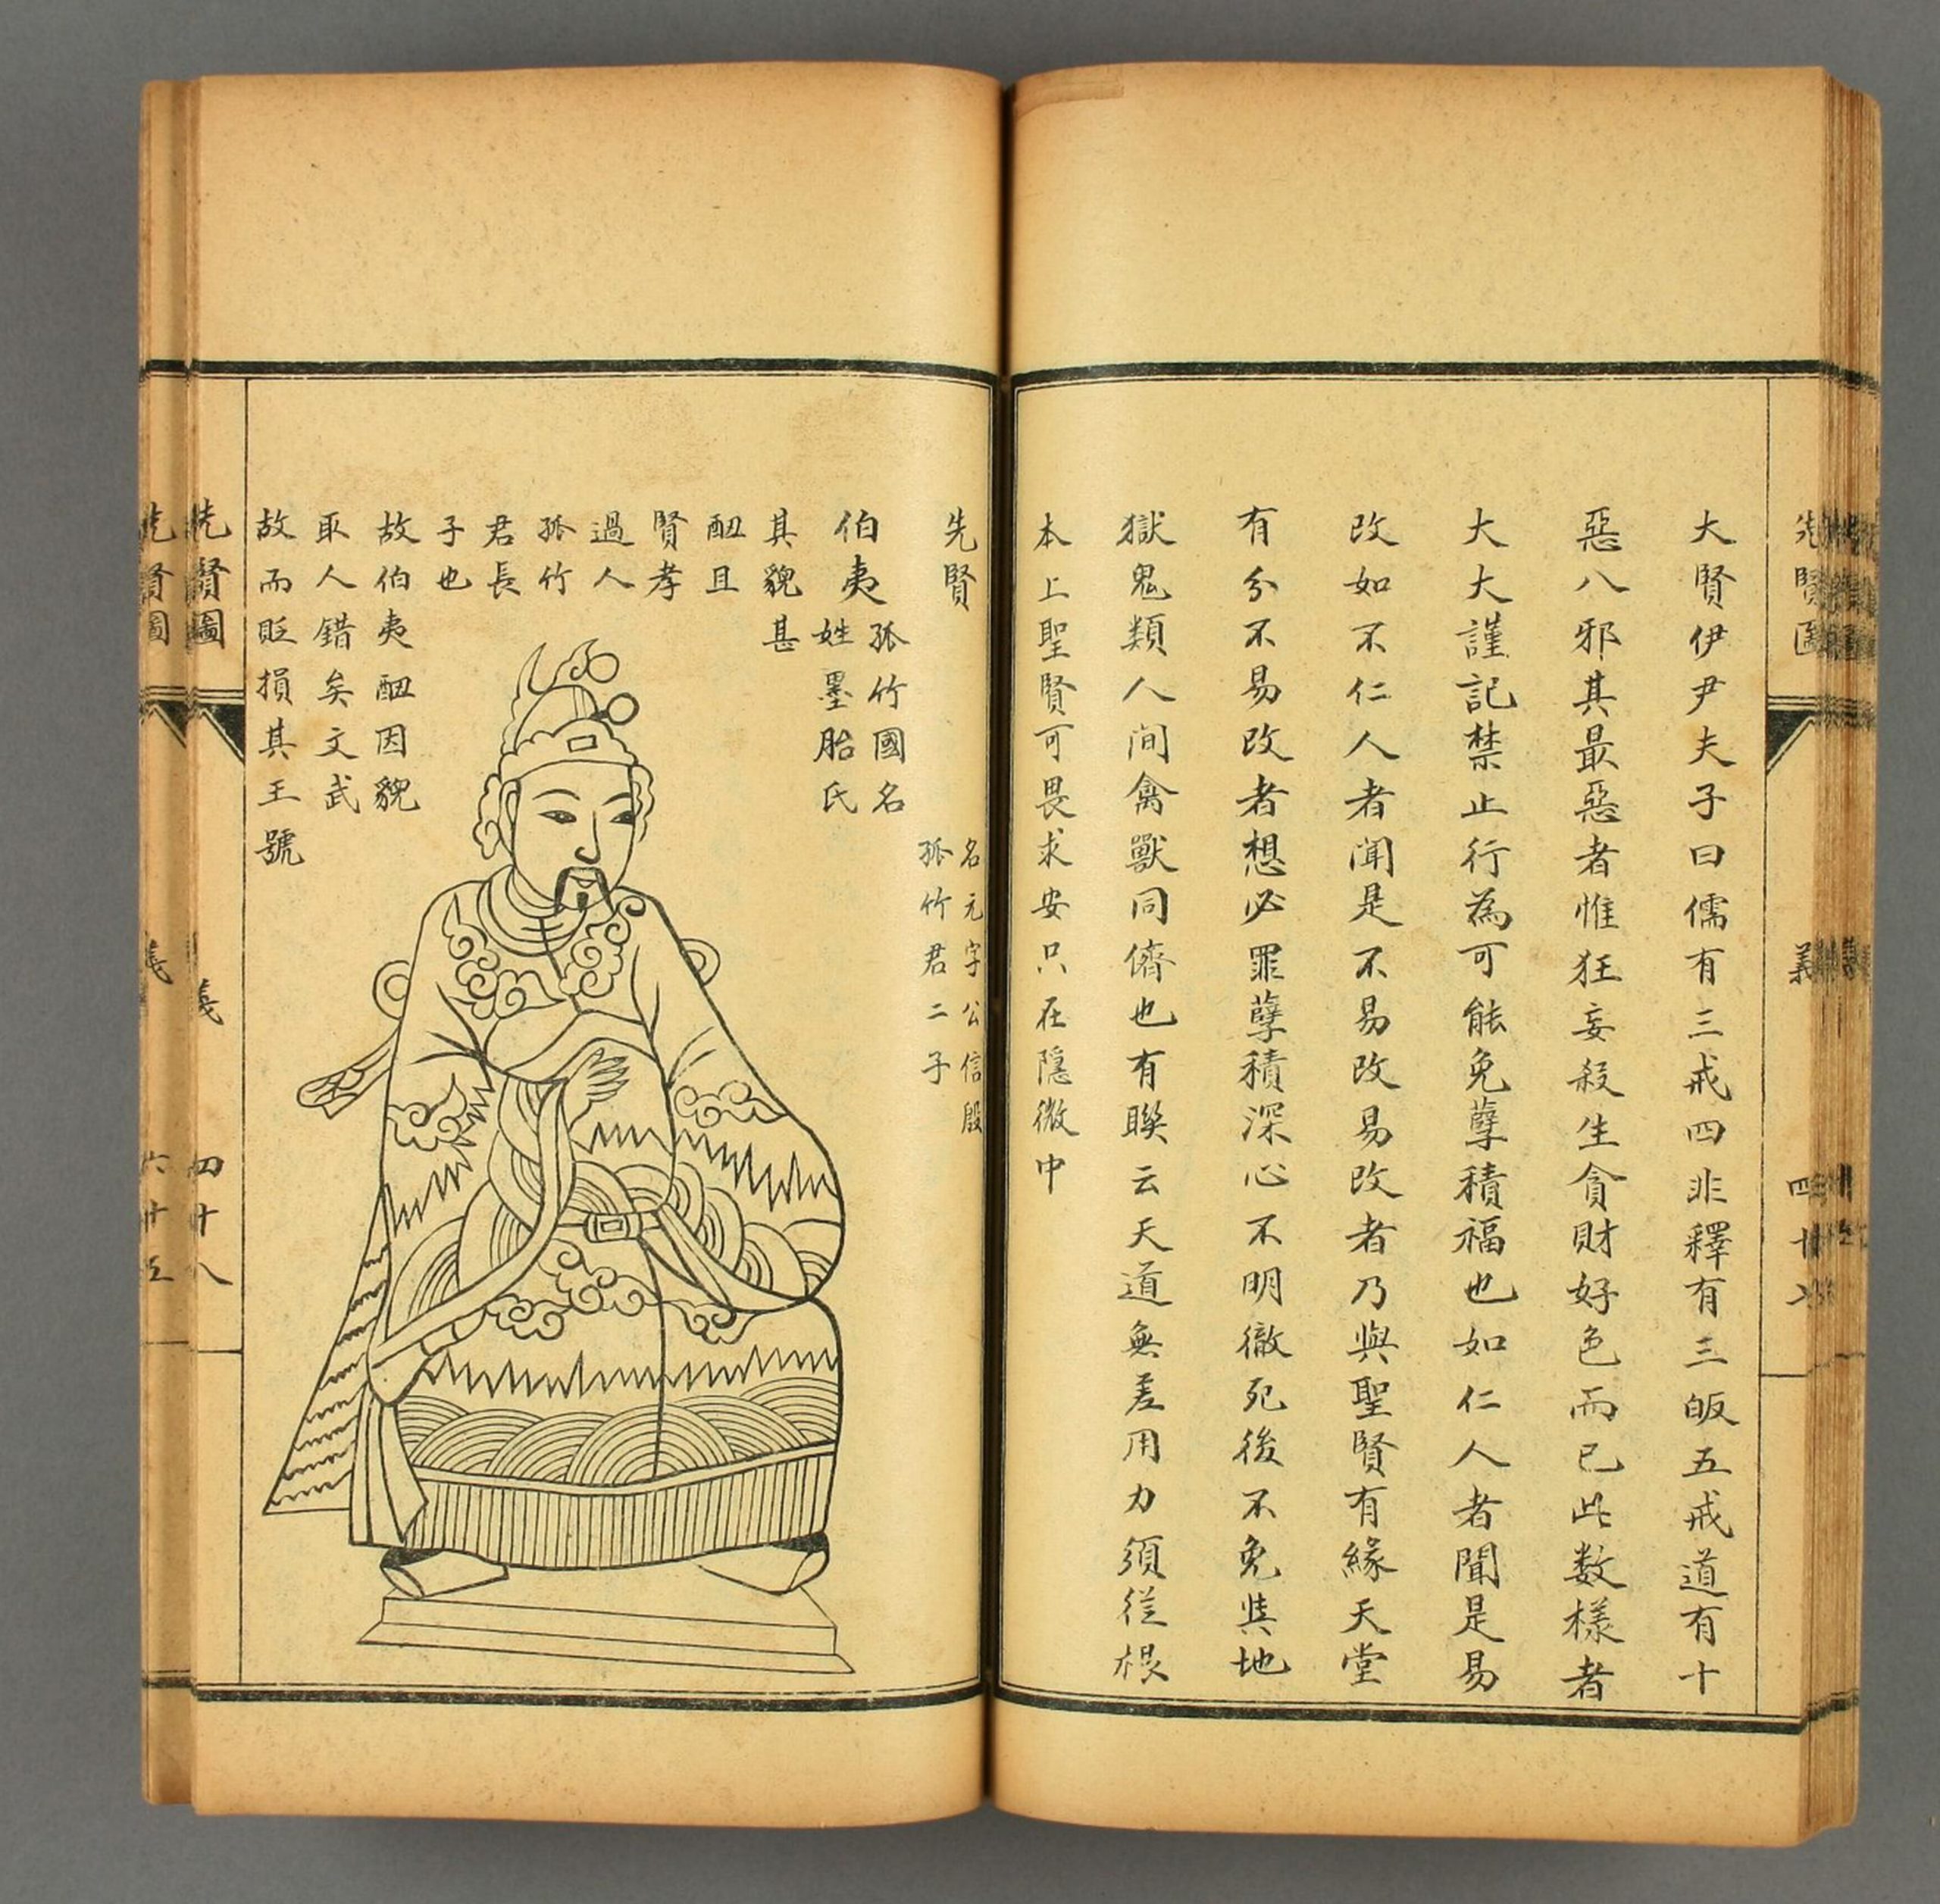 大賢伊尹夫子曰儒有三戒四非釋有三皈五戒道有十
惡八邪其最惡者惟狂妄殺生貪財好色而已此数樣者
大大謹記禁止行為可能免孽積福也如仁人者聞是易
改如不仁人者聞是不易改易改者乃與聖賢有緣天堂
有分不易改者想必罪孽積深心不明徹死後不免與地
獄鬼類人间禽獸同儕也有聯云天道無差用力須從根
本上聖賢可畏求安只在隱微中
先賢
名元字公信殷
孤竹君二子
伯夷
孤竹國名
姓墨胎氏
其貌甚
醜且
賢孝
過人
孤竹
君長
子也
故伯夷醜因貌
取人錯矣文武
故而貶損其王號
先賢圖
義
四廿八